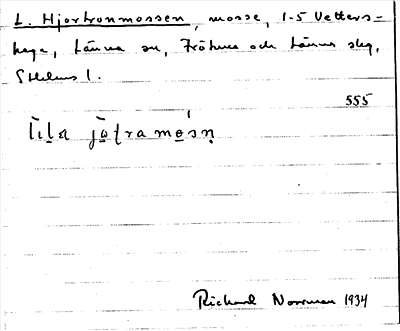 L. Hjortronmossen, mosse, 1-5 Vetters-
haga, Länna sn, Frötuna och Länna skg,
Sthlms l.
555
lìla jo̱ʈramo̱sṇ
Richard Norrman 1934